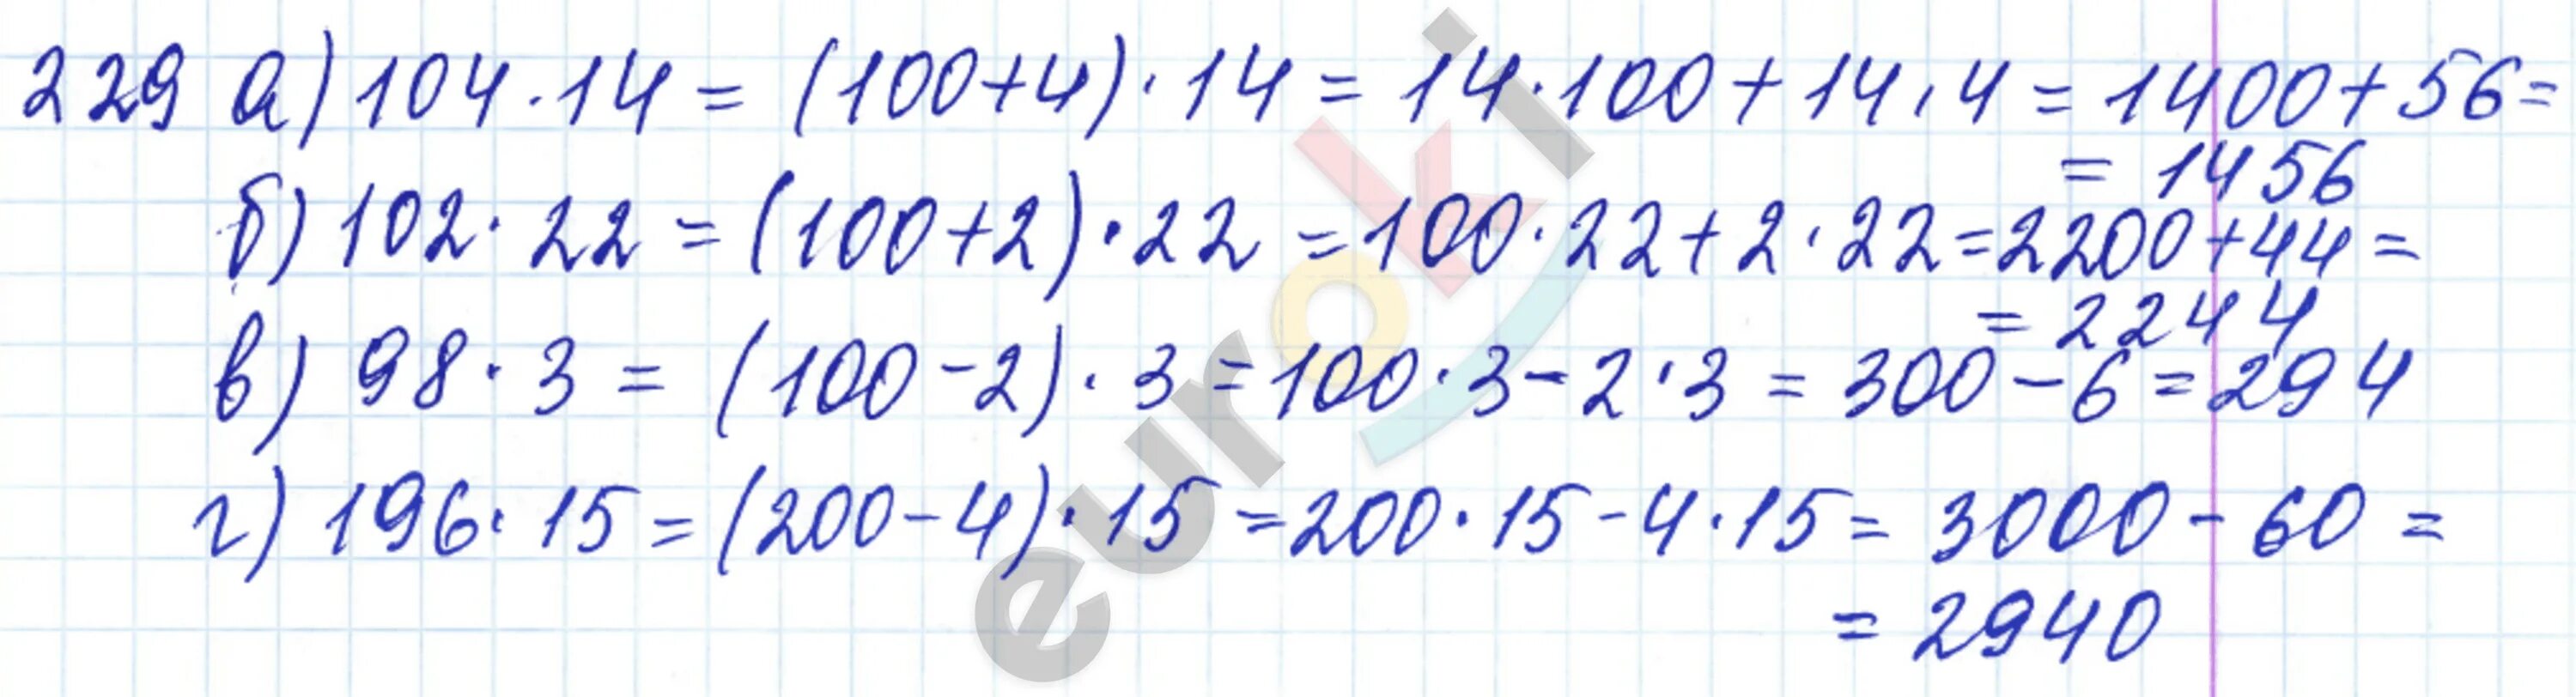 229 а) 104 · 14 = (100+4) · 14 = 14 · 100 + 14 · 4 = 1400 + 56 =
= 1456
б) 102 · 22 = (100+2) · 22 = 100 · 22 + 2 · 22 = 2200 + 44 =
= 2244
в) 98 · 3 = (100 - 2) · 3 = 100 · 3 - 2 · 3 = 300 - 6 = 294
г) 196 · 15 = (200 - 4) · 15 = 200 · 15 - 4 · 15 = 3000 - 60 =
= 2940
euroki